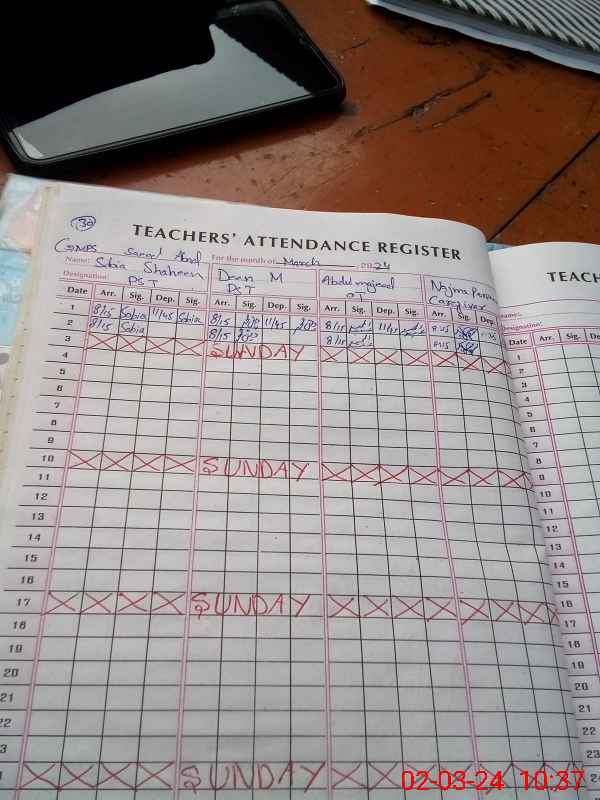 30
TEACHERS' ATTENDANCE REGISTER
GMPS Saeed Abad For the month of March 2024
Name: Sobia Shaheen Deen M Abdul majeed Najma
Designation: PST PST Caregiver
Date Arr. Sig. Dep. Sig. Arr. Sig. Dep. Sig. Arr. Sig. Dep. Sig. Arr. Sig. Dep.
1 8/15 Sobia 11/45 Sobia 8/15 11/45 8/15 11/45 8/15
2 8/15 Sobia 8/15 8/15 8/15
3 SUNDAY
4
5
6
7
8
9
10 SUNDAY
11
12
13
14
15
16
17 SUNDAY
18
19
20
21
22
SUNDAY
TEACH
Name:
Designation:
Date Arr. Sig. Dep.
1
2
3
4
5
6
7
8
9
10
11
12
13
14
15
16
17
18
19
20
21
22
23
24
02-03-24 10:37